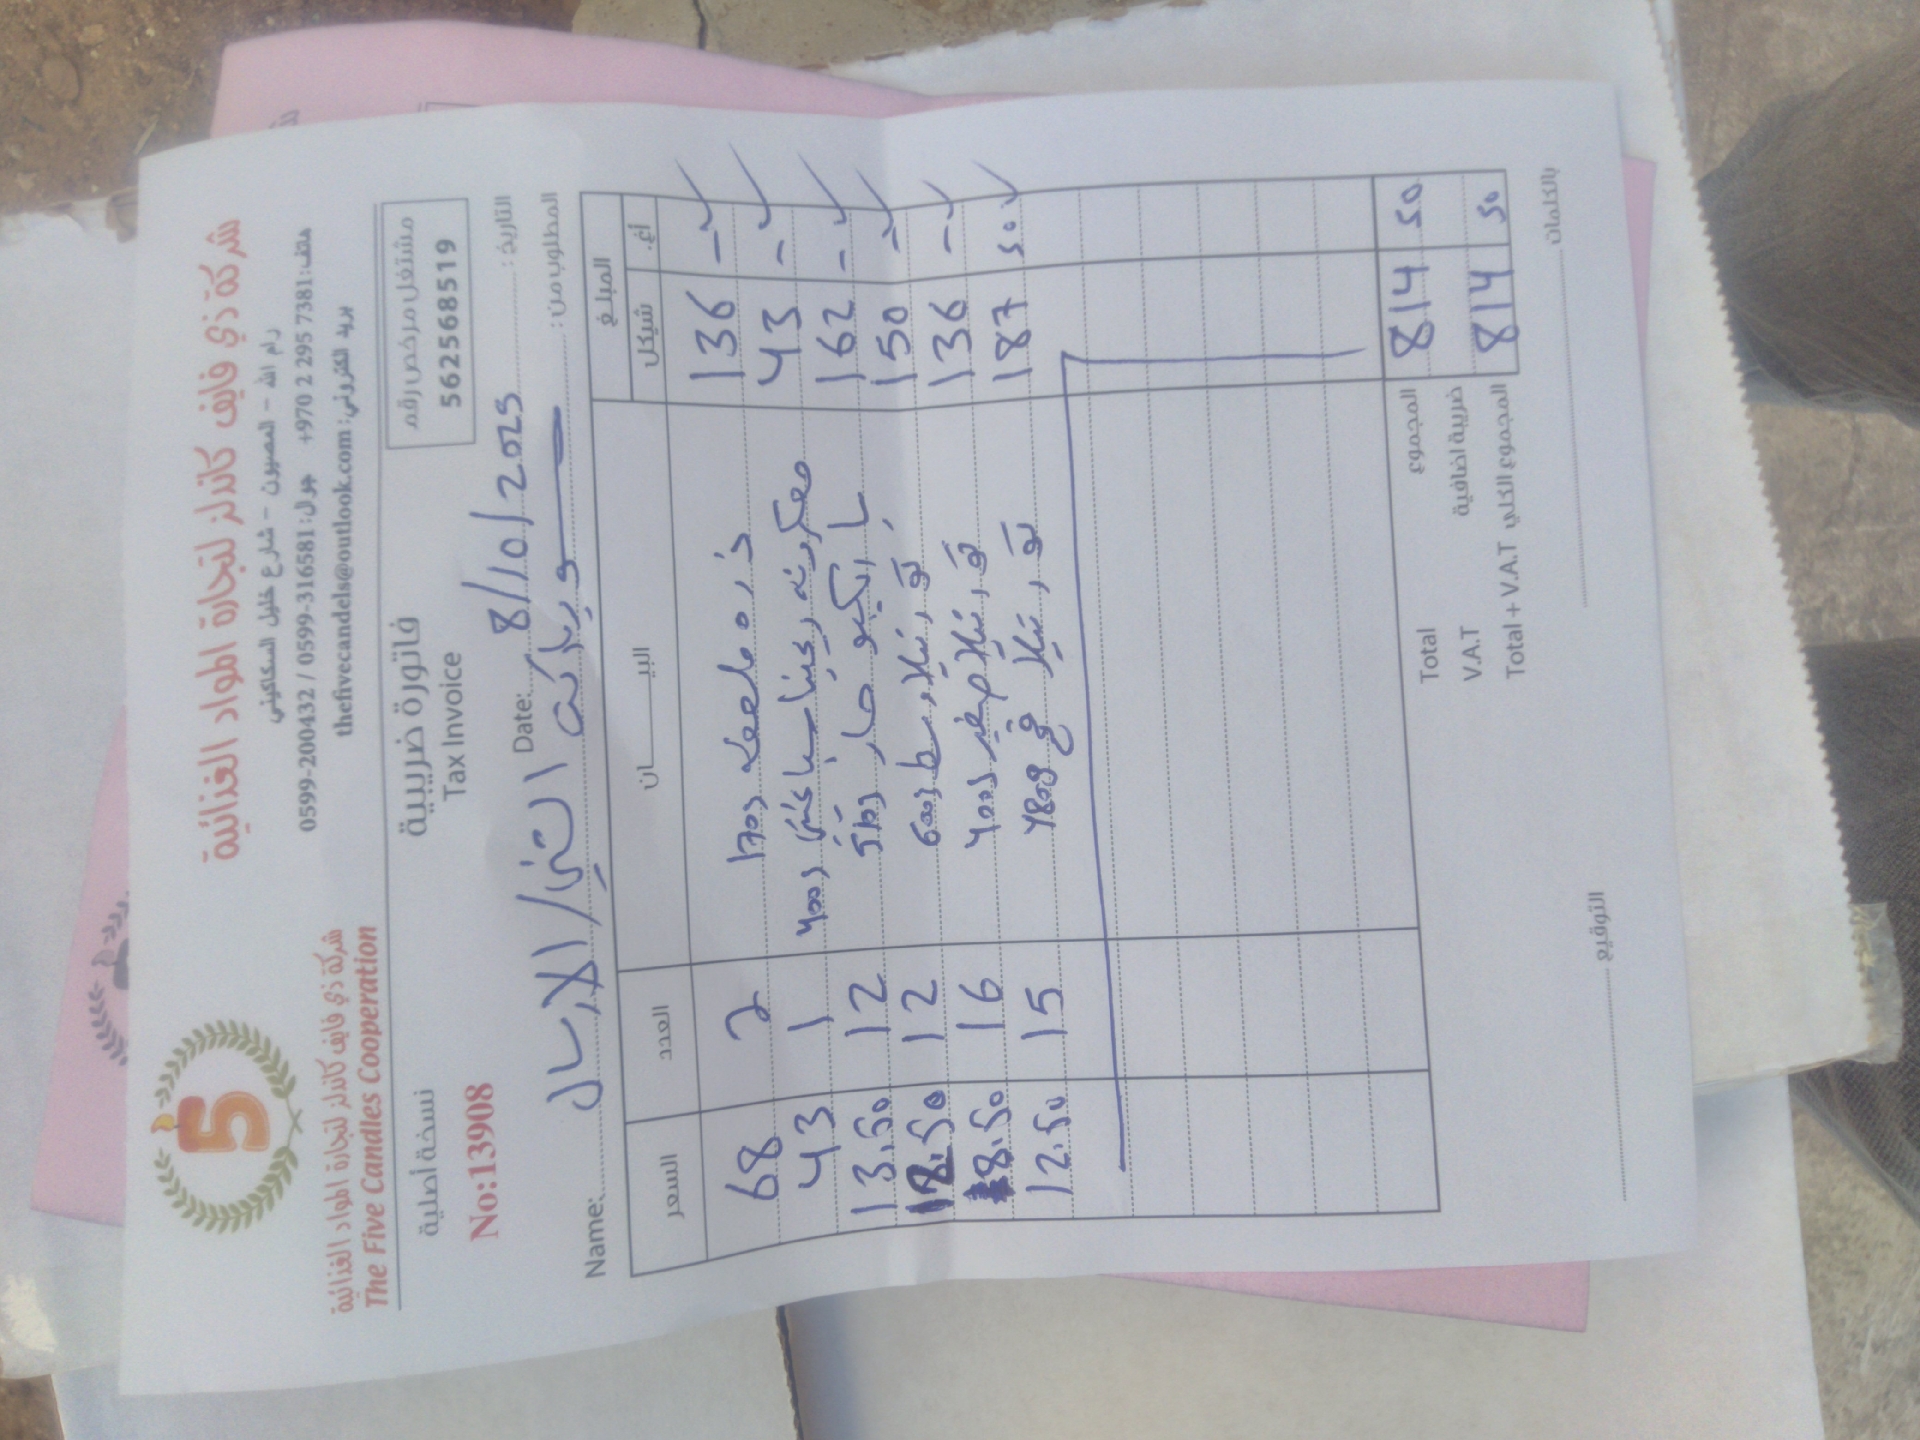 شركة ذي فايف كاندلز لتجارة المواد الغذائية
رام الله - المصيون - شارع خليل السكاكيني
هاتف: +970 2 295 7381 جوال: 0599-316581 / 0599-200432
بريد الكتروني: thefivecandels@outlook.com
5
شركة ذي فايف كاندلز لتجارة المواد الغذائية
The Five Candles Cooperation
مشتغل مرخص رقم
562568519
فاتورة ضريبية
Tax Invoice
نسخة أصلية
No:13908
التاريخ: 8/10/2025 Date:
المطلوب من: وبركة / الإرسال Name:
المبلغ البيـــــــان العدد السعر
شيكل أغ.
136 - ذره 2 68
43 - 1 43
162 - باربكيو 12 13.50
150 - تورتيلا وسط 12 12.50
136 - تورتيلا صغير 16 8.50
187 50 تورتيلا قمح 15 12.50
814 50 المجموع Total
ضريبة اضافية V.A.T
814 50 المجموع الكلي Total + V.A.T
بالكلمات
التوقيع